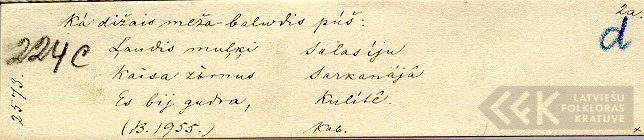 2a.
Kā dižais meža-balwdis pūš:
224c
d
Ļaudis muļķi Salasīju
Kaisa zornus Sarkanājā
Es bij gudra, Kulītē.
(B. 1955.) Kab.
2573.
LATVIEŠU
FOLKLORAS
KRĀTUVE